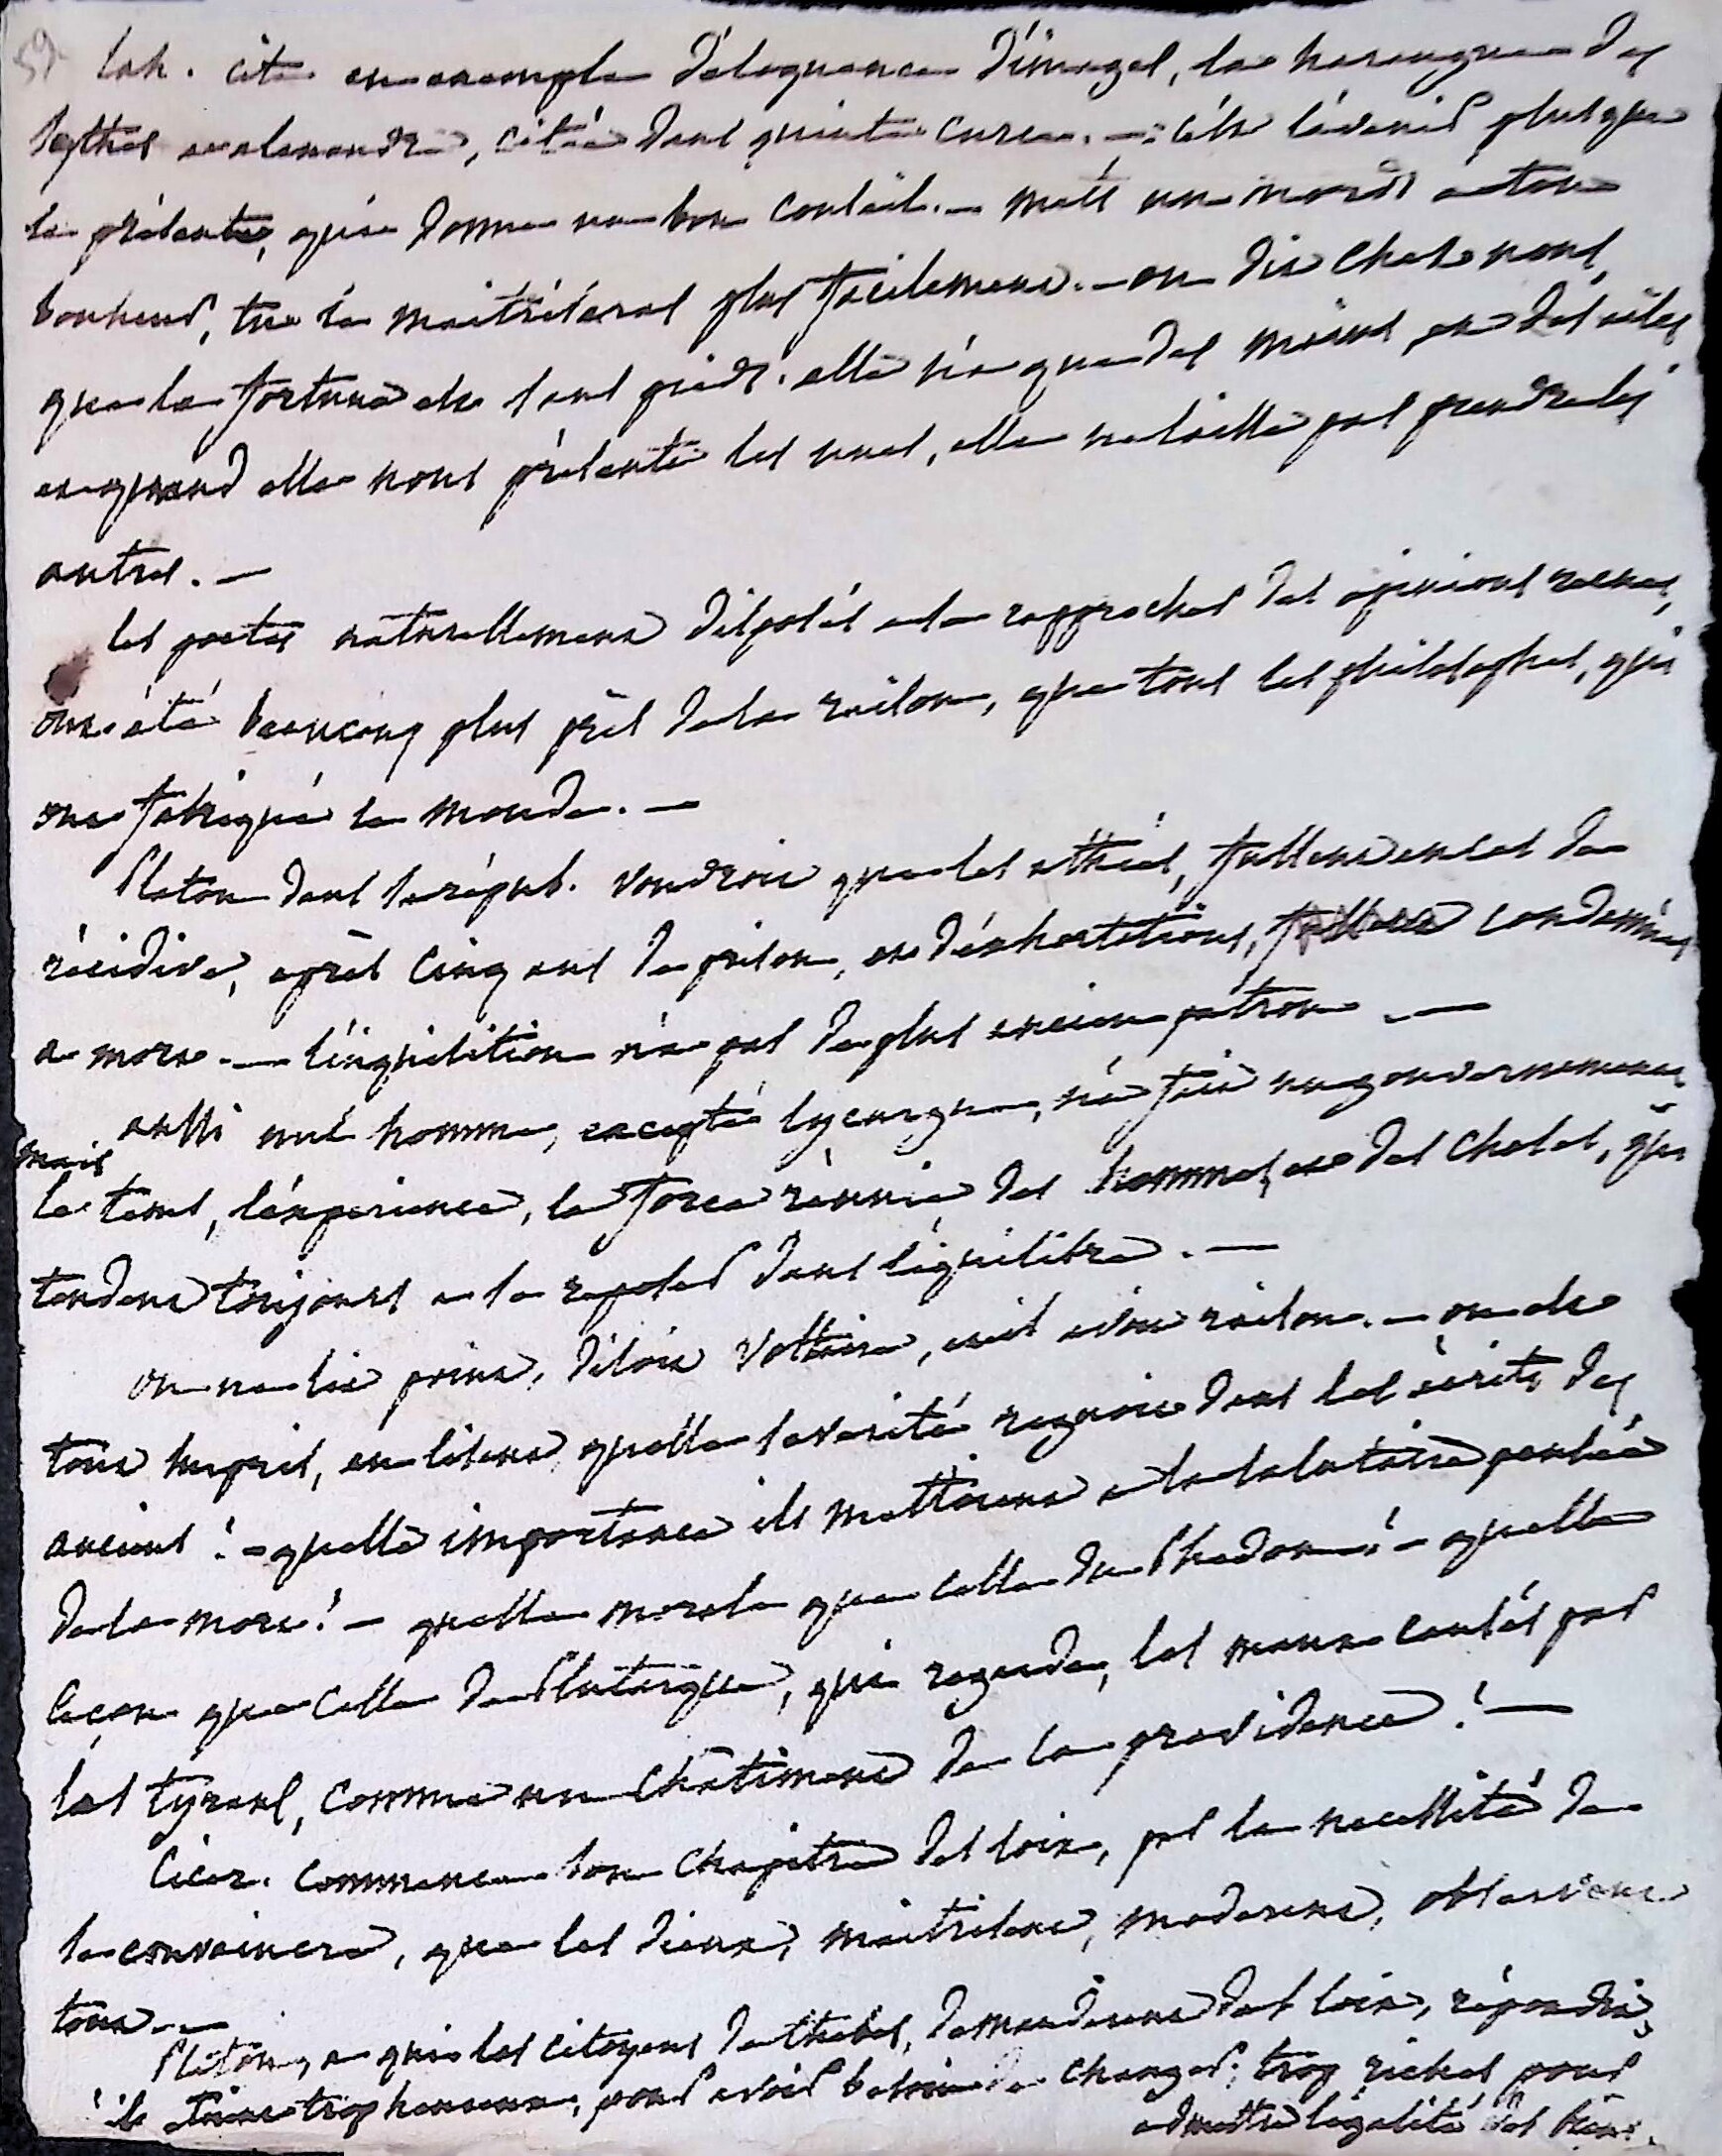 59 lah. cite en exemple d'éloquence d'images, la harangue des
scythes a alexandre, citée dans quinte curce. — c'est l'avenir plus que
le présent, qui donne un bon conseil. — mets un mords a ton
bonheur, tu le maitriseras plus facilement. — on dit chez nous,
que la fortune est sans pieds. elle n'a que des mains et des ailes
et quand elle nous présente les unes, elle ne laisse pas prendre les
autres. —
les poetes naturellement disposés a se rapprocher des opinions recues,
ont été beaucoup plus près de la raison, que tous les philosophes, qui
ont fabriqué le monde. —
Platon dans sa répub. voudroit que les athées, fussent en cas de
récidive, après cinq ans de prison, et d'exhortations, condamnés
a mort. — l'inquisition n'a pas de plus ancien patron. —
aussi nul homme, excepté lycurgue, n'a fait un gouvernement,
mais
le tems, l'expérience, la force réunie des hommes et des choses, qui
tendent toujours a se reposer dans l'équilibre. —
on ne lit point, disoit Voltaire, et il avoit raison. — on est
tout surpris, en lisant quelle sévérité regnoit dans les écrits des
anciens ! — quelle importance ils mettoient a la salutaire pensée
de la mort ! — quelle morale que celle du Phedon ! — quelle
leçon que celle de Plutarque, qui regarde, les maux causés par
les tyrans, comme un châtiment de la providence ! —
Cicer. commence son chapitre des loix, par la nécessité de
se convaincre, que les dieux, maitrisent, moderent, observent
tout. —
Platon, a qui les citoyens de thebes, demandoient des loix, répondit,
ils étoient trop heureux, pour avoir besoin de changer ; trop riches pour
admettre l'égalité des biens.